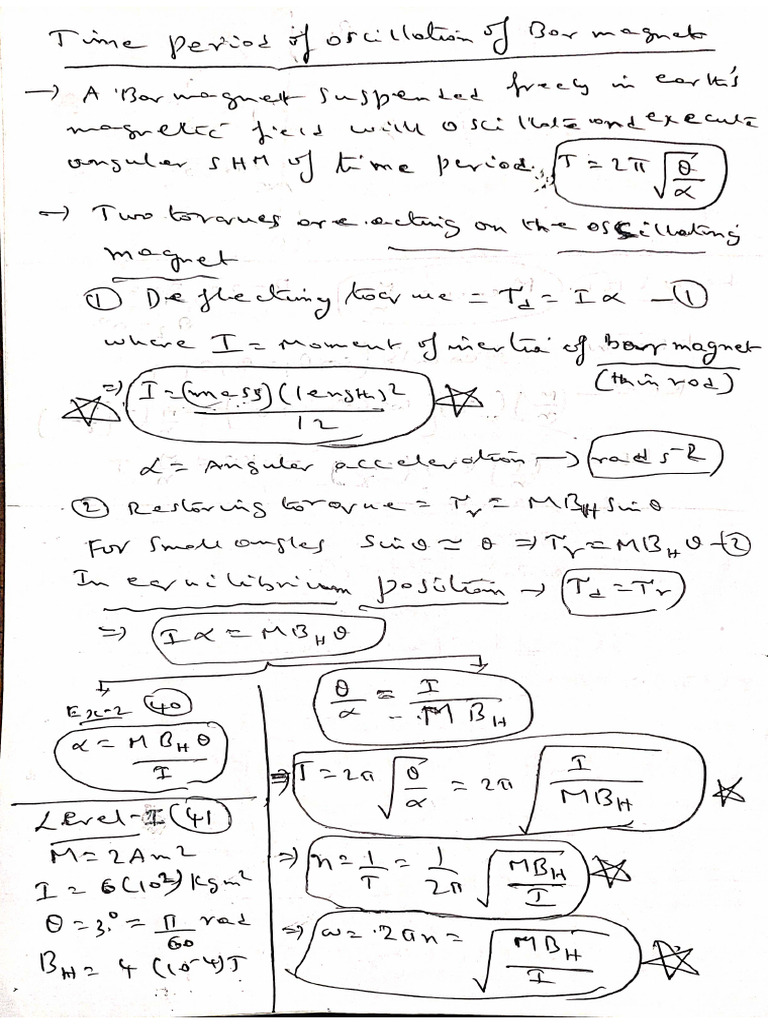 Time period of oscillation of Bar magnet
→ A Bar magnet suspended freely in earth's
magnetic field will oscillate and execute
angular SHM of time period. T = 2π √(θ/α)
→ Two torques are acting on the oscillating
magnet
① Deflecting torque = τd = Iα —①
where I = Moment of inertia of Bar magnet
(thin rod)
⇒ I = (mass)(length)²/12
α = Angular acceleration → rad s⁻²
② Restoring torque = τr = MBH sinθ
For small angles sinθ ≃ θ ⇒ τr = MBHθ —②
In equilibrium position → τd = τr
⇒ Iα = MBHθ
Ex-2 40
α = MBHθ/I
Level-I 41
M = 2Am²
I = 6(10²) kgm²
θ = 3° = π/60 rad
BH = 4 (10⁻⁴)T
θ/α = I/MBH
⇒ T = 2π √(θ/α) = 2π √(I/MBH)
⇒ n = 1/T = 1/2π √(MBH/I)
⇒ ω = 2πn = √(MBH/I)